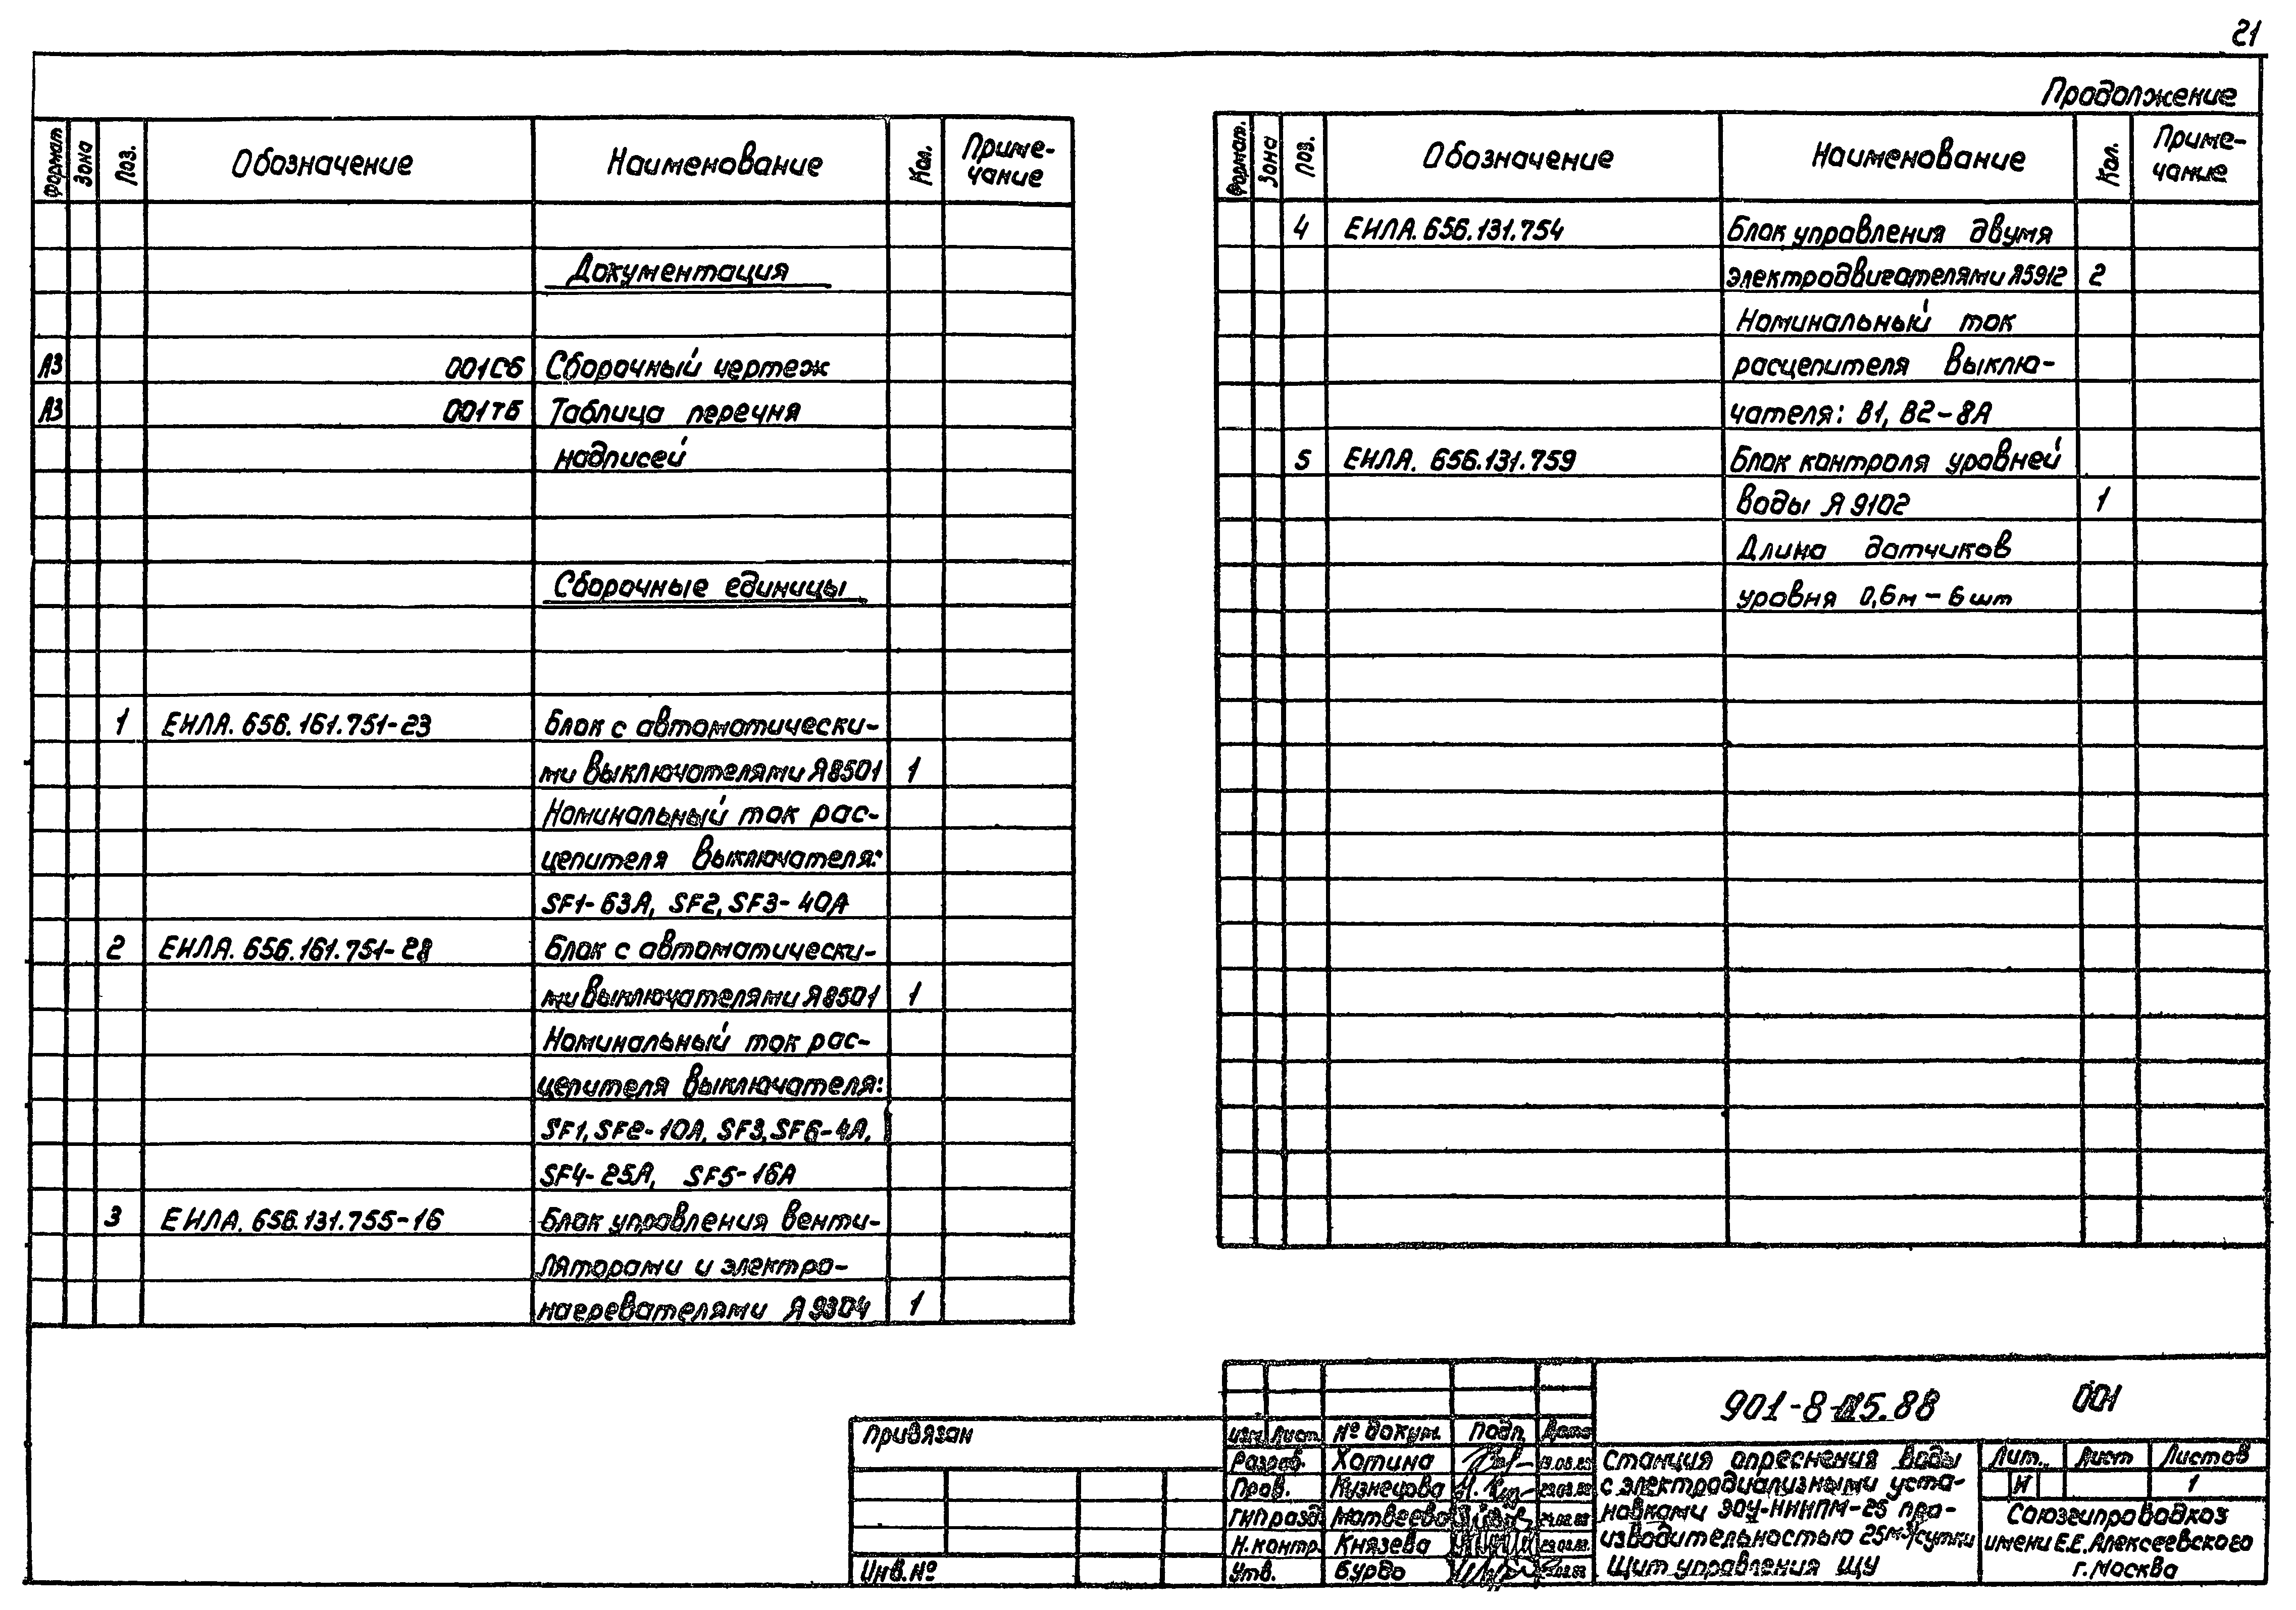 21
Продолжение
Формат Зона Поз. Обозначение Наименование Кол. Приме-
чание
Документация
А3 001СБ Сборочный чертеж
А3 001ТБ Таблица перечня
надписей
Сборочные единицы
1 ЕИЛА. 656.161.751-23 Блок с автоматически-
ми выключателями Я8501 1
Номинальный ток рас-
цепителя выключателя:
SF1-63А, SF2, SF3-40А
2 ЕИЛА. 656.161.751-28 Блок с автоматически-
ми выключателями Я8501 1
Номинальный ток рас-
цепителя выключателя:
SF1, SF2-10А, SF3, SF6-4А,
SF4-25А, SF5-16А
3 ЕИЛА. 656.131.755-16 Блок управления венти-
ляторами и электро-
нагревателями Я9304 1
Формат. Зона Поз. Обозначение Наименование Кол. Приме-
чание
4 ЕИЛА. 656.131.754 Блок управления двумя
электродвигателями Я5912 2
Номинальный ток
расцепителя выклю-
чателя: В1, В2-8А
5 ЕИЛА. 656.131.759 Блок контроля уровней
воды Я 9102 1
Длина датчиков
уровня 0,6м - 6 шт
Привязан
Инв.№
Изм Лист № докум. Подп. Дата
Разраб. Хотина
Пров. Кузнецова
ГИП разд. Матвеева
Н.контр. Князева
Утв. Бурдо
901-8- .88 001
Станция опреснения воды
с электродиализными уста-
новками ЭОУ-НИИПМ-25 про-
изводительностью 25м³/сутки
Щит управления ЩУ
Лит. Лист Листов
И 1
Союзгипроводхоз
имени Е.Е.Алексеевского
г.Москва